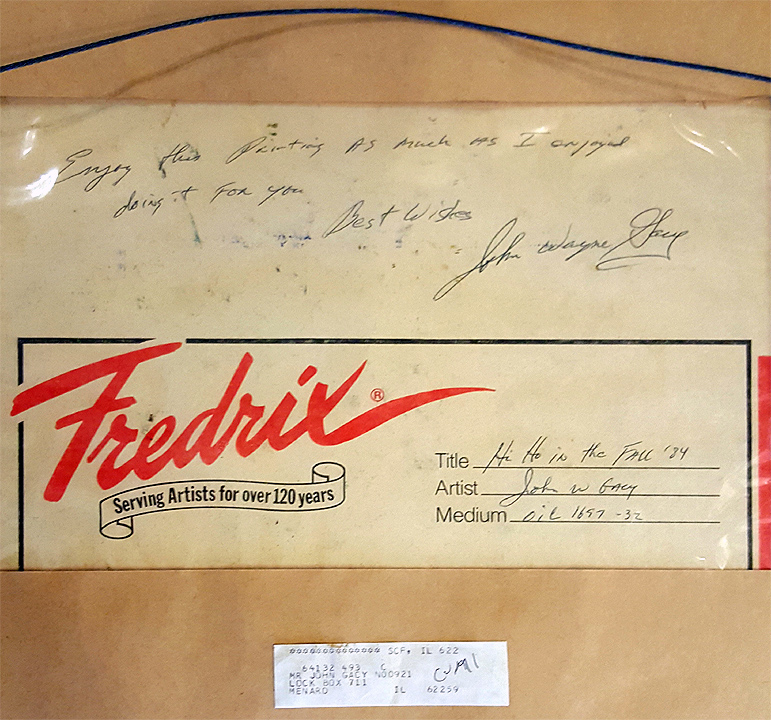 Enjoy this Painting As much As I enjoyed
doing it For you
Best Wishes
John Wayne Gacy
Fredrix ®
Serving Artists for over 120 years
Title Hi Ho in the FALL '84
Artist John W Gacy
Medium oil 1697-32
************** SCF, IL 622
64132 493 C
MR JOHN GACY N00921
LOCK BOX 711
MENARD IL 62259